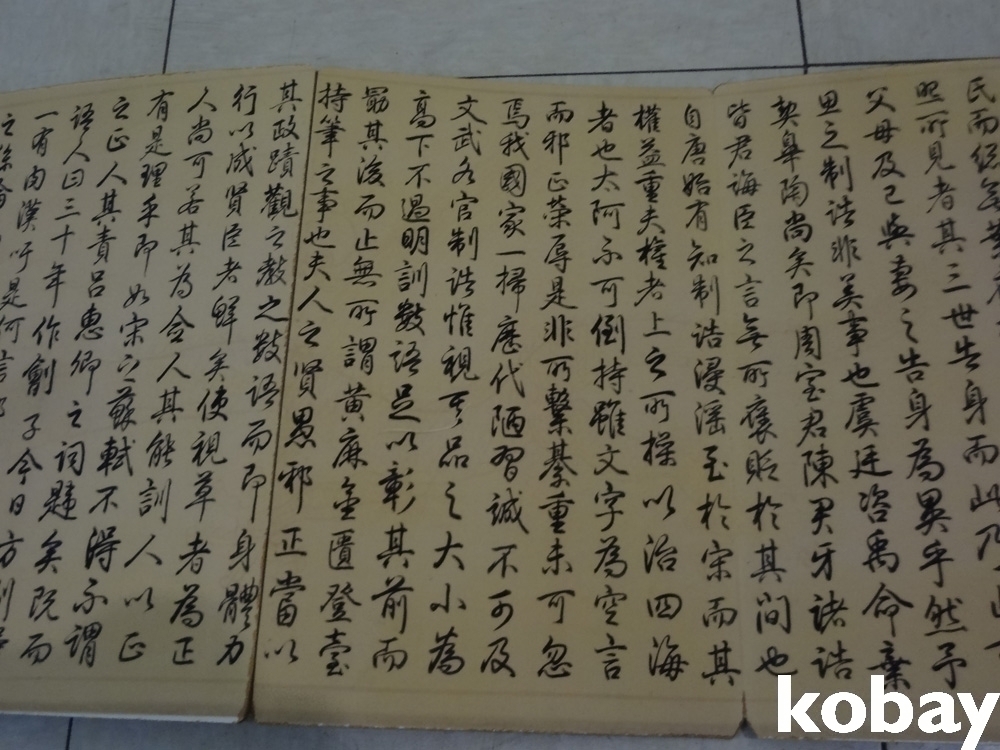 民而
照所見者其三世告身而此乃
父母及己與妻之告身為異乎然予
思之制誥非美事也虞廷咨禹命棄
契皋陶尚矣即周室君陳君牙諸誥
皆君誨臣之言無所褒貶於其間也
自唐始有知制誥浸淫至於宋而其
權益重夫權者上之所操以治四海
者也太阿不可倒持雖文字為空言
而邪正榮辱是非所繫綦重未可忽
焉我國家一掃歷代陋習誠不可及
文武各官制誥惟視其品之大小為
高下不過明訓數語足以彰其前而
勖其後而止無所謂黃麻金匱登臺
持筆之事也夫人之賢愚邪正當以
其政蹟觀之教之數語而即身體力
行以成賢臣者鮮矣使視草者為正
人尚可若其為僉人其能訓人以正
有是理乎即如宋之蘇軾不得不謂
之正人其責呂惠卿之詞韙矣既而
語人曰三十年作劊子今日方剮
一有肉漢吁是何言
kobay